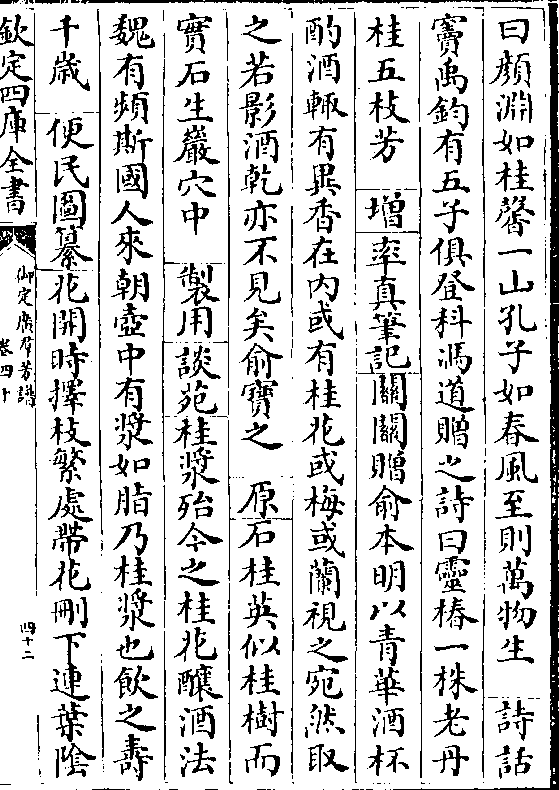 曰顏淵如桂馨一山孔子如春風至則萬物生　詩話
竇禹鈞有五子俱登科馮道贈之詩曰靈椿一株老丹
桂五枝芳　增率真筆記關關贈俞本明以青華酒杯
酌酒輙有異香在内或有桂花或梅或蘭視之宛然取
之若影酒乾亦不見矣俞寶之　原石桂英似桂樹而
實石生巖穴中　製用談苑桂漿殆今之桂花釀酒法
魏有頻斯國人來朝壺中有漿如脂乃桂漿也飲之壽
千歲　便民圖纂花開時擇枝繁處帶花刪下連葉陰
欽定四庫全書
御定廣羣芳譜
卷四十
四十二